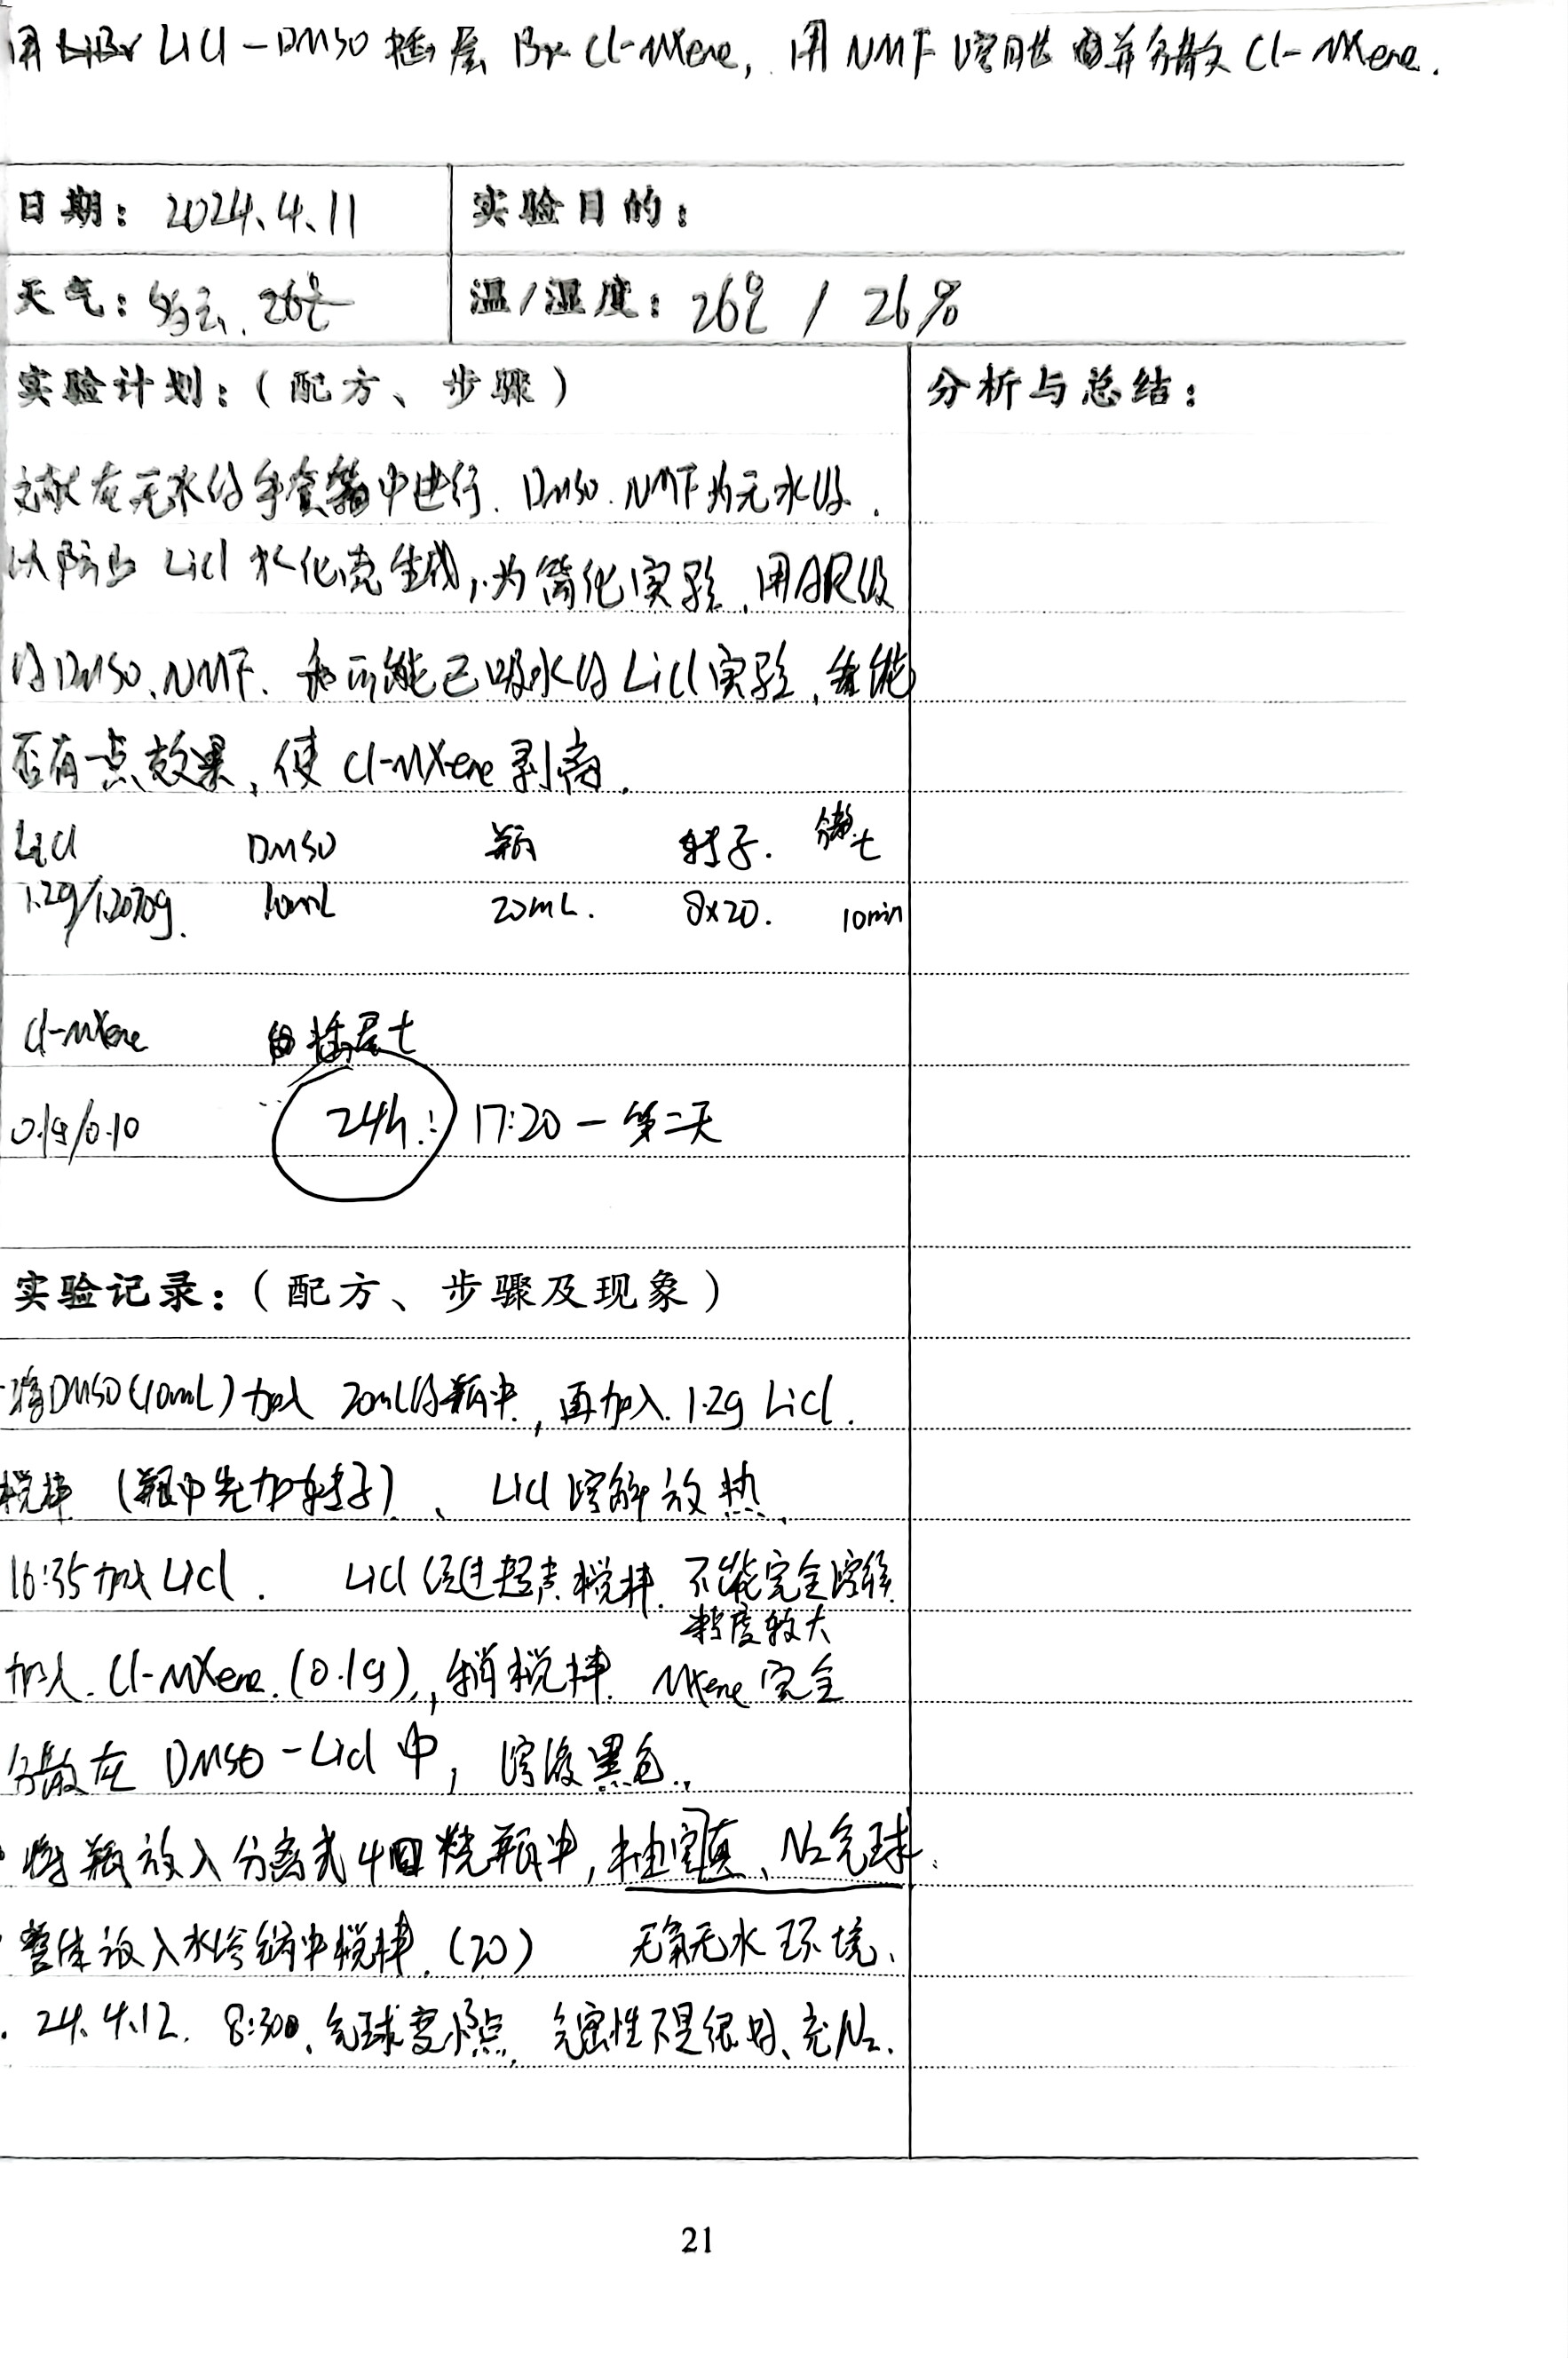 用 LiBr LiCl-DMSO 插层 Br Cl-MXene, 用 NMF 溶胀 并分散 Cl-MXene.
日期: 2024.4.11 实验目的:
天气: 多云. 26℃ 温/湿度: 26℃ / 26%
实验计划:(配方、步骤) 分析与总结:
文献在无水的手套箱中进行. DMSO. NMF为无水级.
以防止 LiCl 水化壳生成, 为简化实验, 用AR级
的DMSO、NMF. 和可能已吸水的LiCl实验, 看能
否有一点效果, 使 Cl-MXene 剥离.
LiCl DMSO 瓶 转子. 分散t
1.2g/1.2070g. 10mL 20mL. 8×20. 10min
Cl-MXene 插层t
0.1g/0.10 24h.: 17:20 - 第二天
实验记录:(配方、步骤及现象)
将DMSO(10mL)加入 20mL的瓶中, 再加入 1.2g LiCl.
搅拌 (瓶中先加转子)、 LiCl 溶解放热.
16:35加入LiCl. LiCl 经过超声搅拌. 不能完全溶解.
粘度较大
加入. Cl-MXene. (0.1g), 稍搅拌. MXene 完全
分散在 DMSO-LiCl 中, 溶液黑色.
将瓶放入分离式4口烧瓶中, 抽真空、N₂气球.
整体放入水浴锅中搅拌. (20) 无氧无水环境、
. 24.4.12. 8:30、气球变小点, 气密性不是很好、充N₂.
21